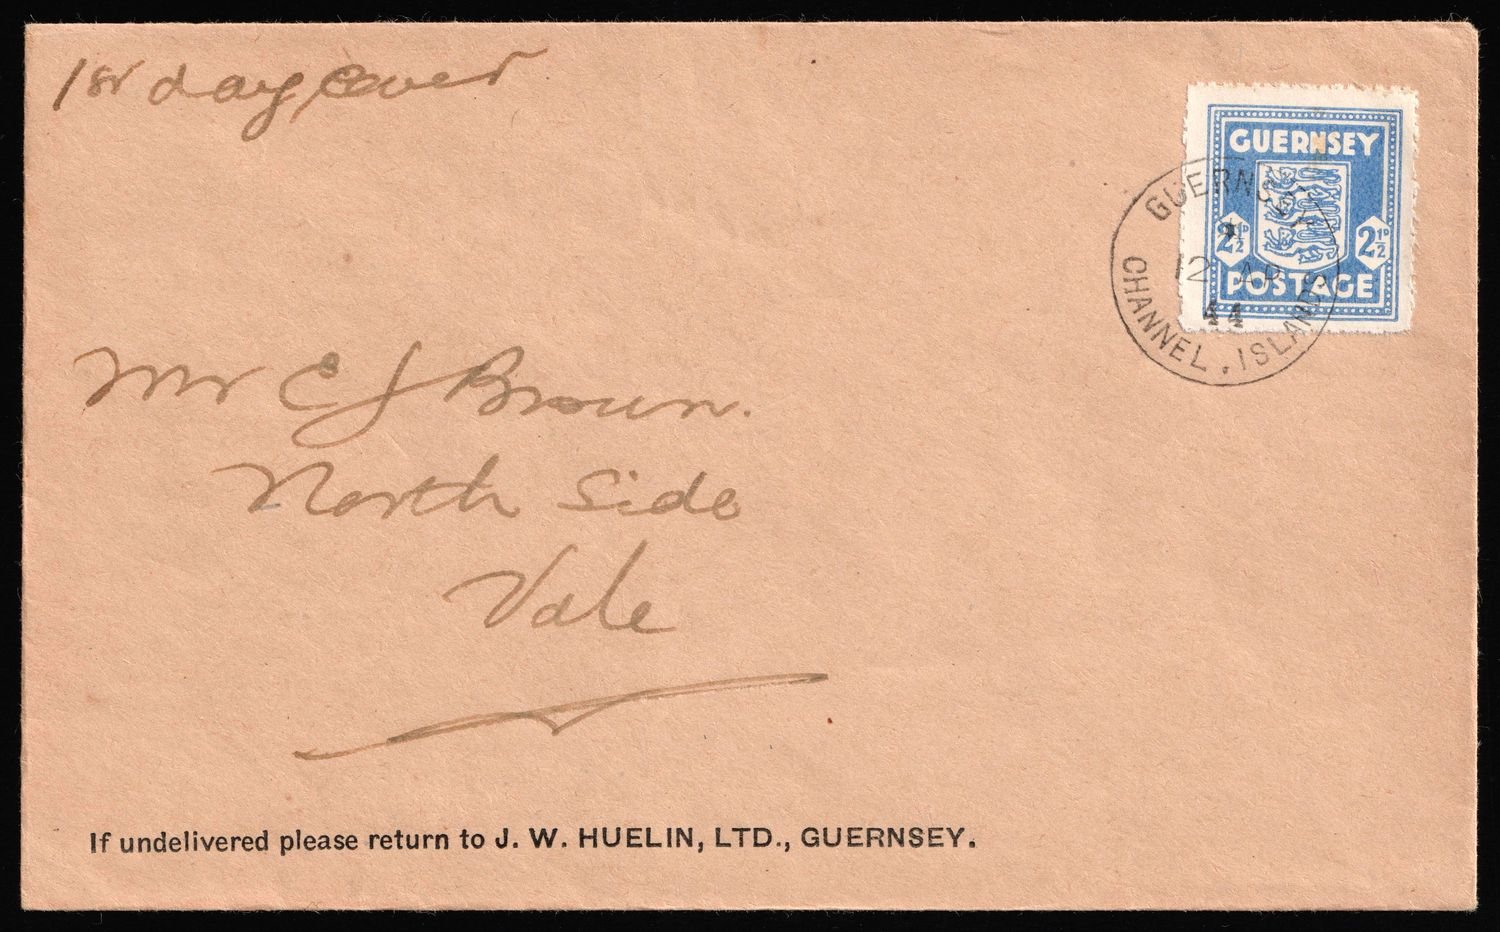 1st day cover
GUERNSEY
2½D 2½D
POSTAGE
GUERNSEY
12 AP
44
CHANNEL. ISLANDS
Mr E J Brown.
North Side
Vale
If undelivered please return to J. W. HUELIN, LTD., GUERNSEY.